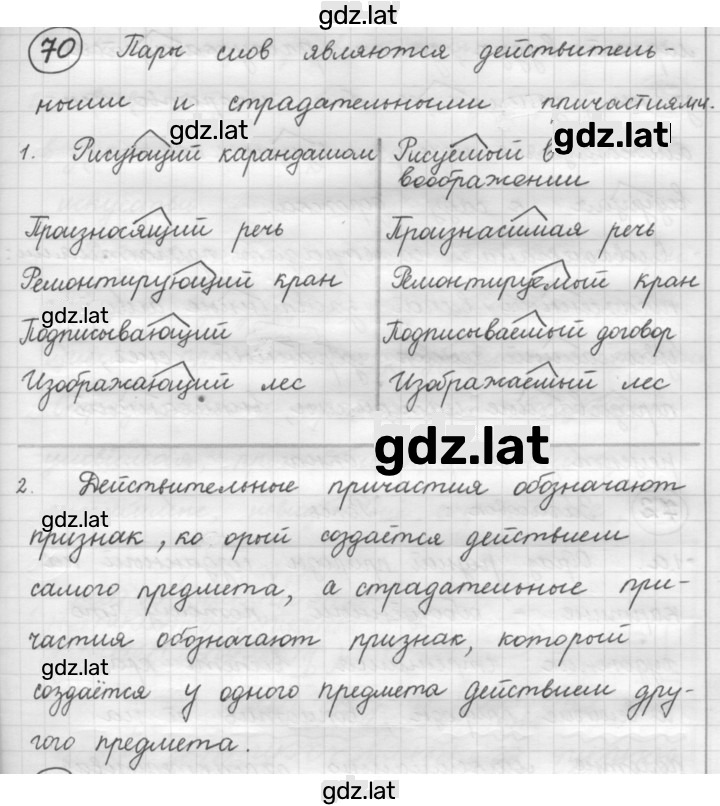 gdz.lat
70 Пары слов являются действитель-
ными и страдательными причастиями.
gdz.lat
gdz.lat
1. Рисующий карандашом Рисуемый в
воображении
Произносящий речь Произнасимая речь
Ремонтирующий кран Ремонтируемый кран
gdz.lat
Подписывающий Подписываемый договор
Изображающий лес Изображаемый лес
gdz.lat
2. Действительные причастия обозначают
gdz.lat
признак, ко орый создаётся действием
самого предмета, а страдательные при-
частия обозначают признак, который
gdz.lat
создаётся у одного предмета действием дру-
гого предмета.
gdz.lat